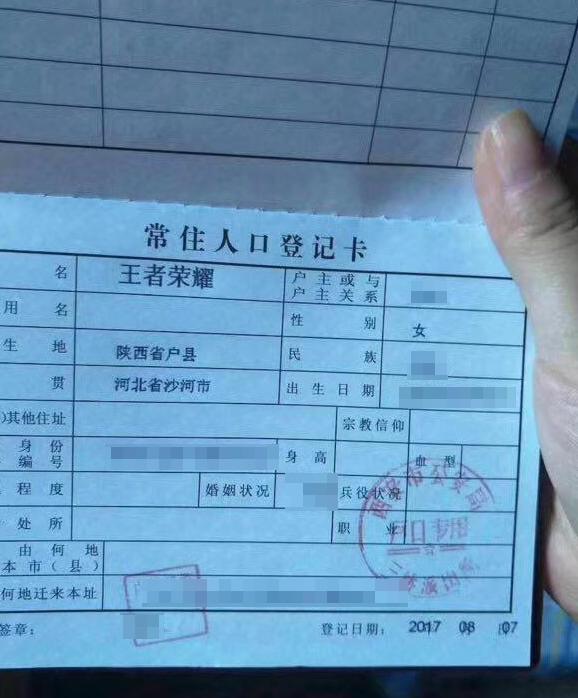 常住人口登记卡
名 王者荣耀 户主或与户主关系
用名 性别 女
生地 陕西省户县 民族
贯 河北省沙河市 出生日期
)其他住址 宗教信仰
身份编号 身高 血型
程度 婚姻状况 兵役状况
处所 职业
由何地
本市(县)
何地迁来本址
签章: 登记日期: 2017 08 07
西安市公安局
户口专用